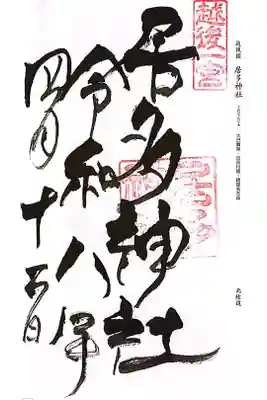 越後國 居多神社
北陸道
越後一宮
居多神社
令和八年
四月十五日